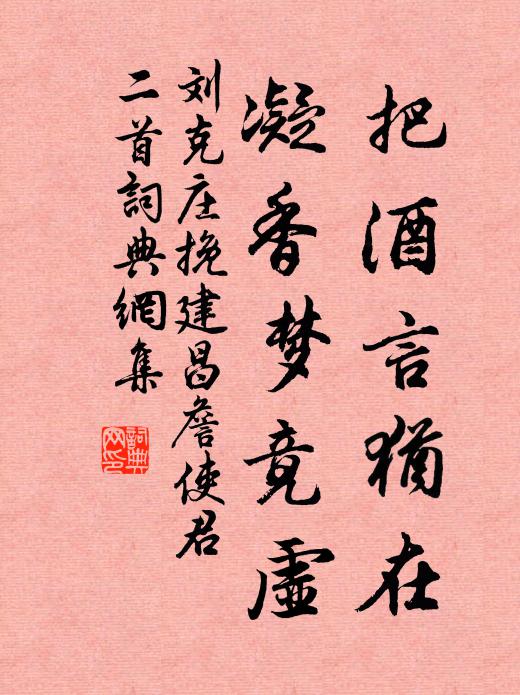 把酒言犹在
凝香梦竟虚
刘克庄挽建昌詹使君
二首詞典網集
詞典
网印